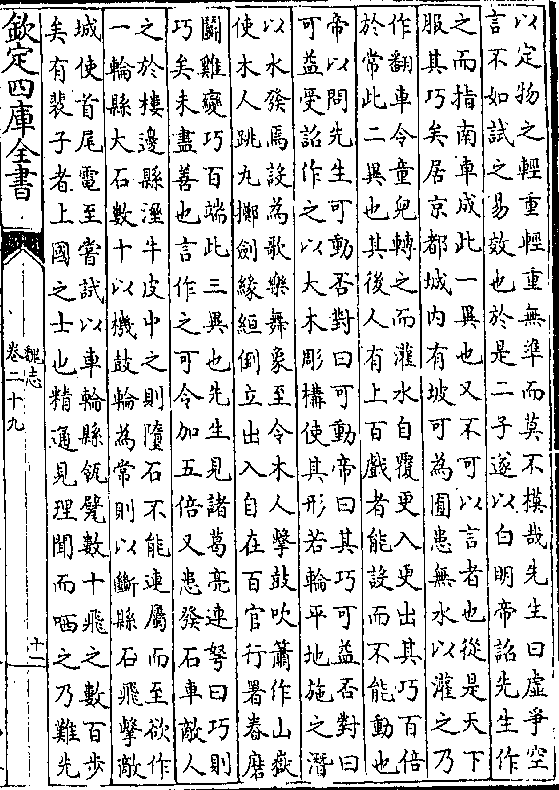 以定物之輕重輕重無準而莫不模哉先生曰虛爭空
言不如試之易效也於是二子遂以白明帝詔先生作
之而指南車成此一異也又不可以言者也從是天下
服其巧矣居京都城内有坡可為囿患無水以灌之乃
作翻車令童兒轉之而灌水自覆更入更出其巧百倍
於常此二異也其後人有上百戲者能設而不能動也
帝以問先生可動否對曰可動帝曰其巧可益否對曰
可益受詔作之以大木彫構使其形若輪平地施之潛
以水發焉設為歌樂舞象至令木人擊鼓吹簫作山嶽
使木人跳丸擲劍緣絙倒立出入自在百官行署舂磨
鬭雞變巧百端此三異也先生見諸葛亮連弩曰巧則
巧矣未盡善也言作之可令加五倍又患發石車敵人
之於樓邊縣溼牛皮中之則墮石不能連屬而至欲作
一輪縣大石數十以機鼓輪為常則以斷縣石飛擊敵
城使首尾電至嘗試以車輪縣瓴甓數十飛之數百步
矣有裴子者上國之士也精通見理聞而哂之乃難先
欽定四庫全書
魏志
卷二十九
十二